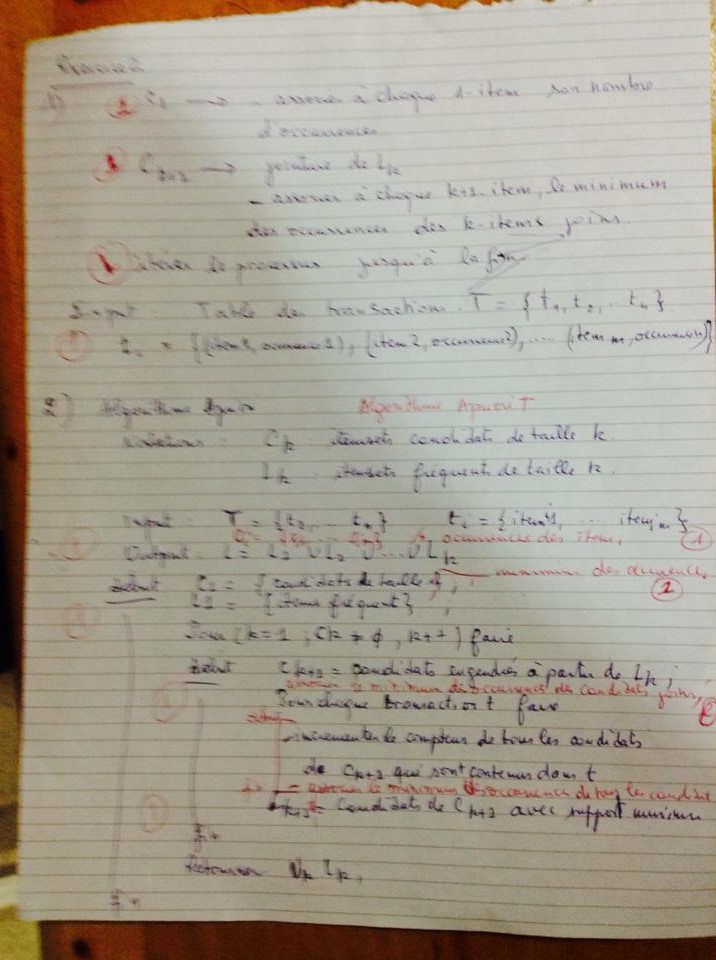 Exercice 2
1) 2 C1 → - associer à chaque 1-item son nombre
d'occurrences
Ck+1 → jointure de Lk
- associer à chaque k+1-item, le minimum
des occurrences des k-items joins.
itérer le processus jusqu'à la fin
Input : Table des transactions. T = { t1, t2, .. tn }
= {(item1, occurrence1), (item2, occurrence2), .... (item m, occurrence)}
2) Algorithme Apriori Algorithme Apriori T
Notations : Ck itemsets candidats de taille k
Lk itemsets fréquents de taille k.
Input T = {t1, ... tn} ti = {item1, ... item m}
occurrences des items 1
Output L = L1 U L2 U ... U Lk
minimum des occurrences
Début C1 = {candidats de taille 1} ; 2
L1 = {items fréquent} ;
Pour (k=1 ; Ck ≠ ø , k++) faire
Début Ck+1 = candidats engendrés à partir de Lk ;
associer le minimum des occurrences des candidats joins,
Pour chaque transaction t faire
début
- incrémenter le compteur de tous les candidats
de Ck+1 qui sont contenus dans t
associer le minimum d'occurrence de tous les candidat
Lk+1 = candidats de Ck+1 avec support minimum
Fin
Retourner Uk Lk ;
Fin